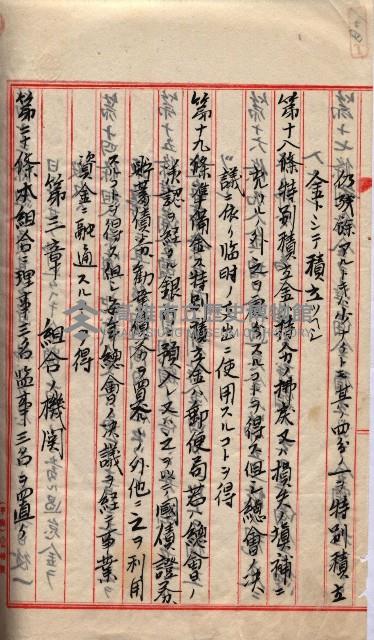 仍残餘アルトキハ少クトモ其ノ四分ノ一ヲ特別積立
金トシテ積立ツヘシ
第十八條特別積立金ハ持分ノ拂戻又ハ損失ノ塡補ニ
充ツル外之ヲ
スルコトヲ得ス但シ總會ノ決
議ニ依リ臨時ノ支出ニ使用スルコトヲ得
第十九條準備金及特別積立金ハ郵便局若ハ總會ノ
承認ヲ経タル銀行ニ預入レ又ハ
國債證券
貯蓄債券勸業債券ヲ買入ルル外他ニ之ヲ利用
スルコトヲ得ス但シ
總會ノ決議ヲ経テ事業ノ
資金ニ融通スルコトヲ得
第三章 組合ノ機関
第二十條本組合ニ理事三名監事三名ヲ置ク